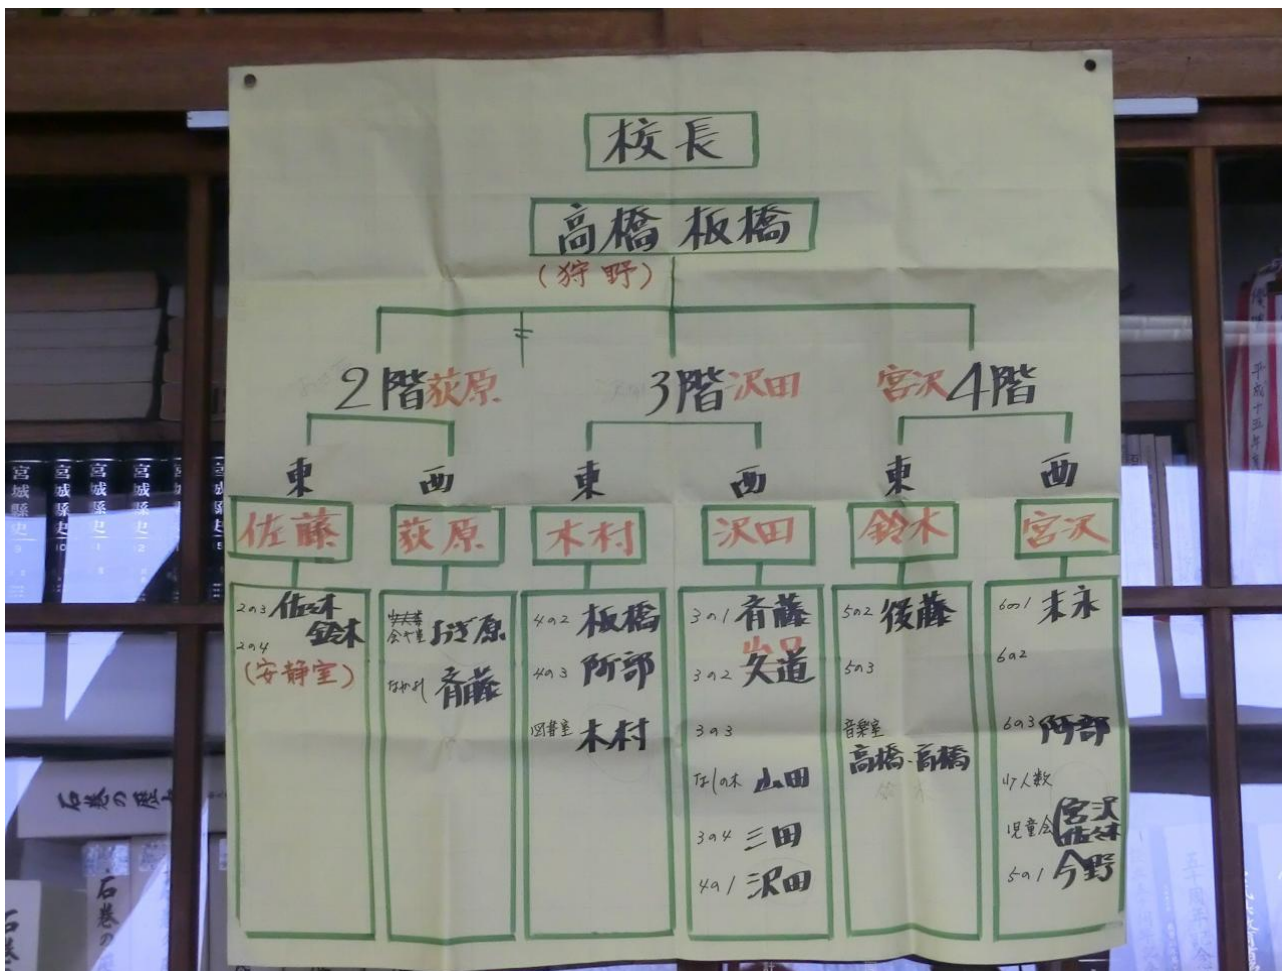 校長
高橋 板橋
(狩野)
2階荻原
3階沢田
宮沢4階
東
西
東
西
東
西
佐藤
荻原
木村
沢田
鈴木
宮沢
2の3 佐々木
鈴木
2の4
(安静室)
おぎ原
斉藤
4の2 板橋
4の3 阿部
図書室 木村
3の1 斉藤
山口
3の2 久道
3の3
なしの木 山田
3の4 三田
4の1 沢田
5の2 後藤
5の3
音楽室
高橋・高橋
6の1 末永
6の2
6の3 阿部
少人数
児童会 宮沢
佐々木
5の1 今野
宮城縣史
宮城縣史
宮城縣史
宮城縣史
石巻の歴
石巻の
石巻
平成十五年